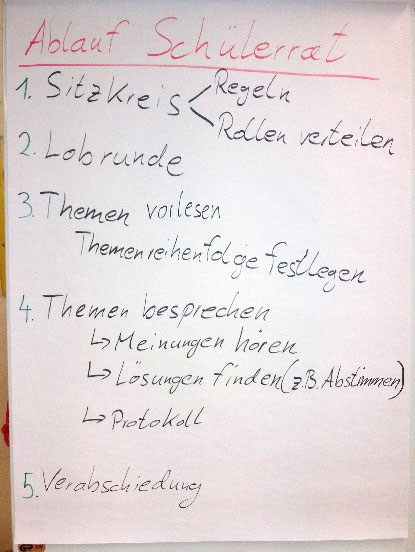 Ablauf Schülerrat
1. Sitzkreis < Regeln
Rollen verteilen
2. Lobrunde
3. Themen vorlesen
Themenreihenfolge festlegen
4. Themen besprechen
↳ Meinungen hören
↳ Lösungen finden (z.B. Abstimmen)
↳ Protokoll
5. Verabschiedung